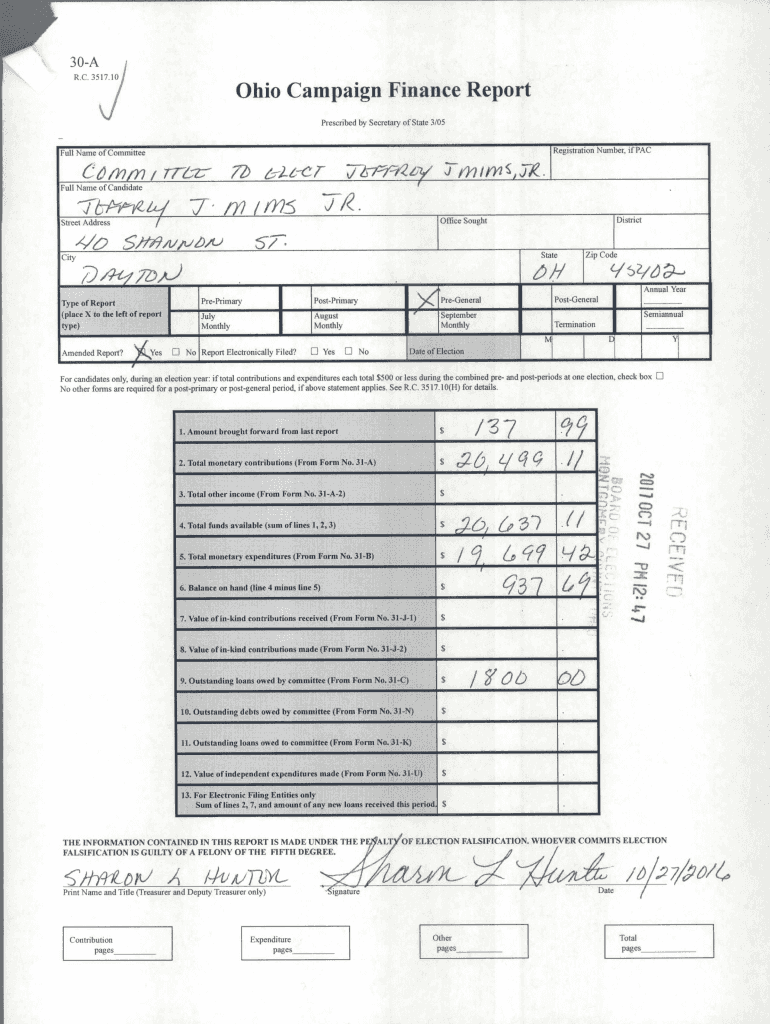 30-A
R.C. 3517.10
Ohio Campaign Finance Report
Prescribed by Secretary of State 3/05
Full Name of Committee
Registration Number, if PAC
COMMITTEE TO ELECT JEFFREY J MIMS, JR.
Full Name of Candidate
JEFFREY J. MIMS JR.
Street Address
Office Sought
District
40 SHANNON ST.
City
State
Zip Code
DAYTON
OH
45402
Type of Report
(place X to the left of report
type)
Pre-Primary
Post-Primary
X
Pre-General
Post-General
Annual Year
July
Monthly
August
Monthly
September
Monthly
Termination
Semiannual
Amended Report? X Yes ☐ No
Report Electronically Filed? ☐ Yes ☐ No
Date of Election
M D Y
For candidates only, during an election year: if total contributions and expenditures each total $500 or less during the combined pre- and post-periods at one election, check box ☐
No other forms are required for a post-primary or post-general period, if above statement applies. See R.C. 3517.10(H) for details.
1. Amount brought forward from last report $ 137 .99
2. Total monetary contributions (From Form No. 31-A) $ 20,499 .11
3. Total other income (From Form No. 31-A-2) $
4. Total funds available (sum of lines 1, 2, 3) $ 20,637 .11
5. Total monetary expenditures (From Form No. 31-B) $ 19,699 42
6. Balance on hand (line 4 minus line 5) $ 937 69
7. Value of in-kind contributions received (From Form No. 31-J-1) $
8. Value of in-kind contributions made (From Form No. 31-J-2) $
9. Outstanding loans owed by committee (From Form No. 31-C) $ 1800 00
10. Outstanding debts owed by committee (From Form No. 31-N) $
11. Outstanding loans owed to committee (From Form No. 31-K) $
12. Value of independent expenditures made (From Form No. 31-U) $
13. For Electronic Filing Entities only
Sum of lines 2, 7, and amount of any new loans received this period. $
RECEIVED
2017 OCT 27 PM 12:47
BOARD OF ELECTIONS
MONTGOMERY
THE INFORMATION CONTAINED IN THIS REPORT IS MADE UNDER THE PENALTY OF ELECTION FALSIFICATION. WHOEVER COMMITS ELECTION
FALSIFICATION IS GUILTY OF A FELONY OF THE FIFTH DEGREE.
SHARON L HUNTER
Sharon L Hunter
10/27/2016
Print Name and Title (Treasurer and Deputy Treasurer only)
Signature
Date
Contribution
pages
Expenditure
pages
Other
pages
Total
pages